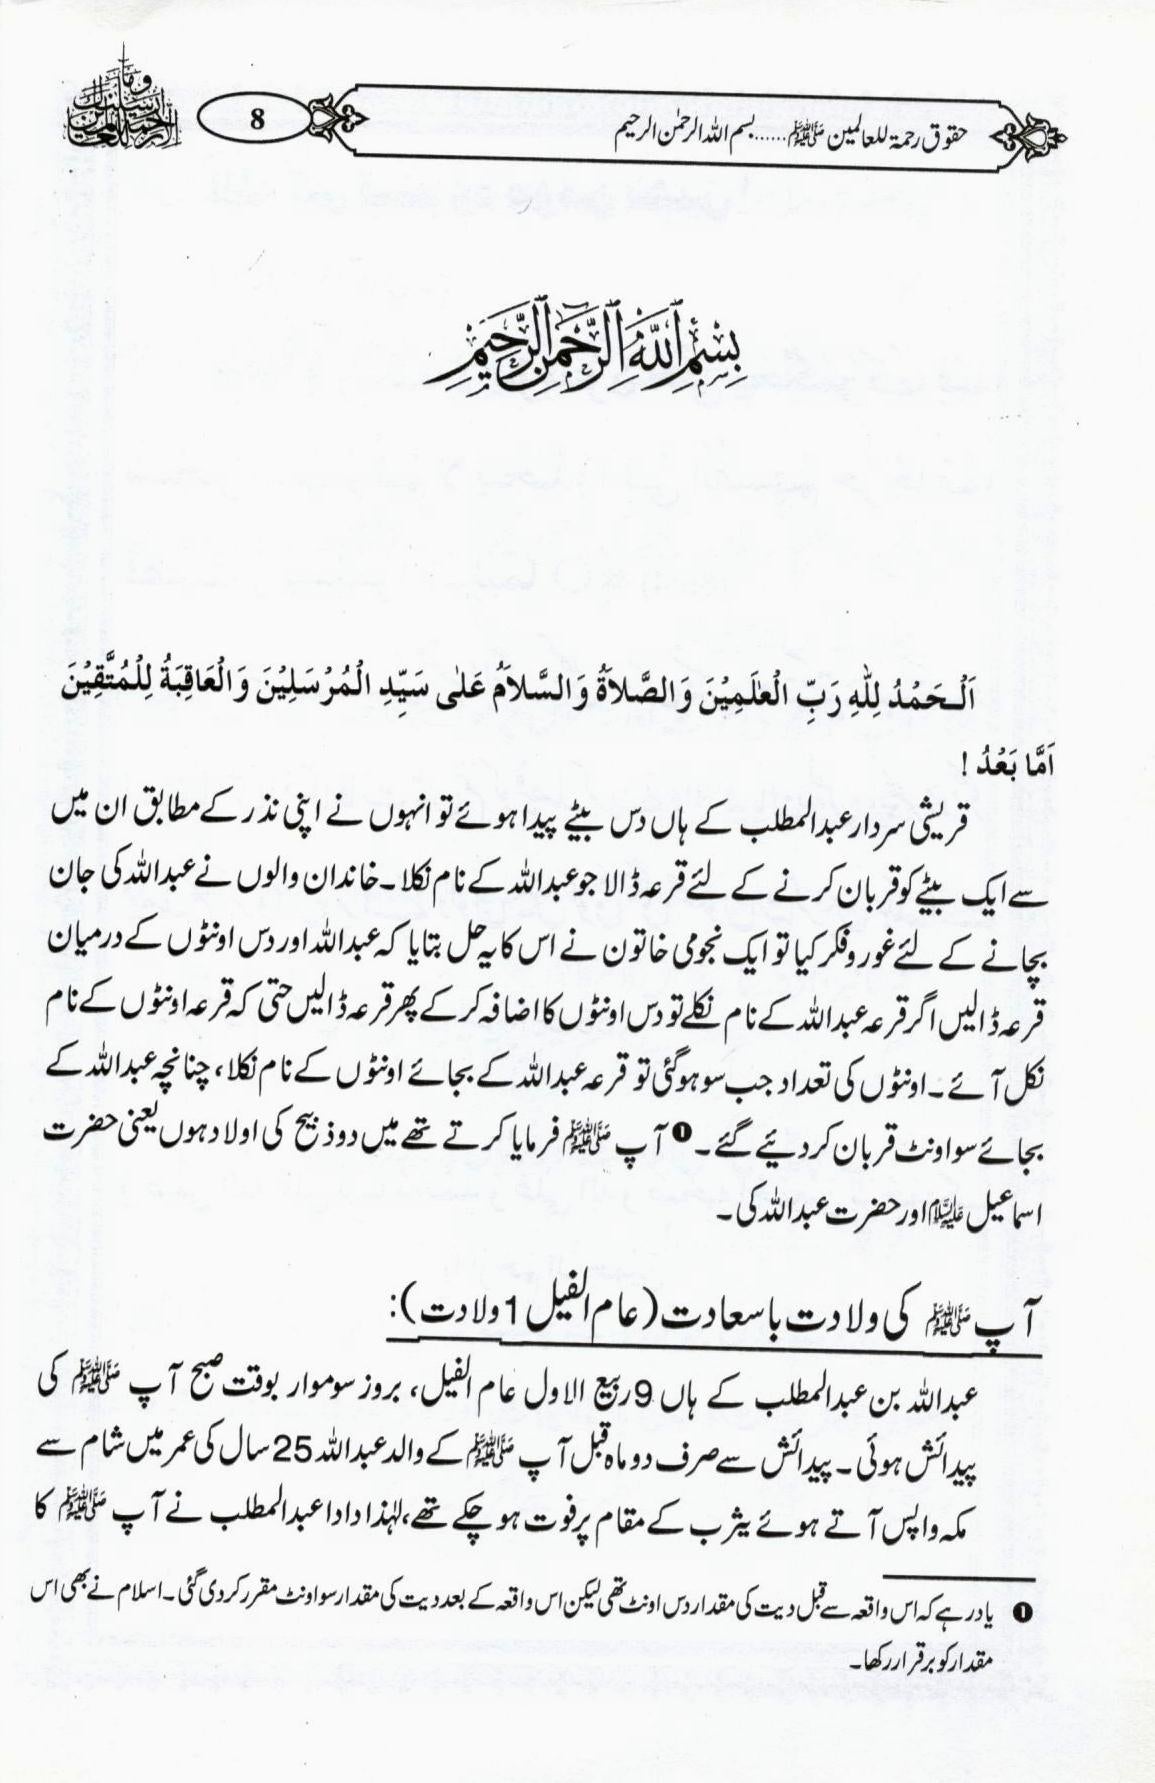 وما أرسلناك إلا رحمة للعالمين
8
حقوق رحمۃ للعالمین ﷺ......بسم اللہ الرحمٰن الرحیم
بِسْمِ اللَّهِ الرَّحْمَنِ الرَّحِيمِ
اَلْحَمْدُ لِلّٰهِ رَبِّ الْعٰلَمِيْنَ وَالصَّلاَةُ وَالسَّلاَمُ عَلٰى سَيِّدِ الْمُرْسَلِيْنَ وَالْعَاقِبَةُ لِلْمُتَّقِيْنَ
اَمَّا بَعْدُ !
قریشی سردار عبدالمطلب کے ہاں دس بیٹے پیدا ہوئے تو انہوں نے اپنی نذر کے مطابق ان میں
سے ایک بیٹے کو قربان کرنے کے لئے قرعہ ڈالا جو عبداللہ کے نام نکلا۔ خاندان والوں نے عبداللہ کی جان
بچانے کے لئے غور و فکر کیا تو ایک نجومی خاتون نے اس کا یہ حل بتایا کہ عبداللہ اور دس اونٹوں کے درمیان
قرعہ ڈالیں اگر قرعہ عبداللہ کے نام نکلے تو دس اونٹوں کا اضافہ کر کے پھر قرعہ ڈالیں حتی کہ قرعہ اونٹوں کے نام
نکل آئے۔ اونٹوں کی تعداد جب سو ہوگئی تو قرعہ عبداللہ کے بجائے اونٹوں کے نام نکلا، چنانچہ عبداللہ کے
بجائے سو اونٹ قربان کر دیئے گئے۔❶ آپ ﷺ فرمایا کرتے تھے میں دو ذبیح کی اولاد ہوں یعنی حضرت
اسماعیل علیہ السلام اور حضرت عبداللہ کی۔
آپ ﷺ کی ولادت باسعادت (عام الفیل 1 ولادت):
عبداللہ بن عبدالمطلب کے ہاں 9 ربیع الاول عام الفیل، بروز سوموار بوقت صبح آپ ﷺ کی
پیدائش ہوئی۔ پیدائش سے صرف دو ماہ قبل آپ ﷺ کے والد عبداللہ 25 سال کی عمر میں شام سے
مکہ واپس آتے ہوئے یثرب کے مقام پر فوت ہو چکے تھے، لہٰذا دادا عبدالمطلب نے آپ ﷺ کا
❶ یاد رہے کہ اس واقعہ سے قبل دیت کی مقدار دس اونٹ تھی لیکن اس واقعہ کے بعد دیت کی مقدار سو اونٹ مقرر کر دی گئی۔ اسلام نے بھی اس
مقدار کو برقرار رکھا۔